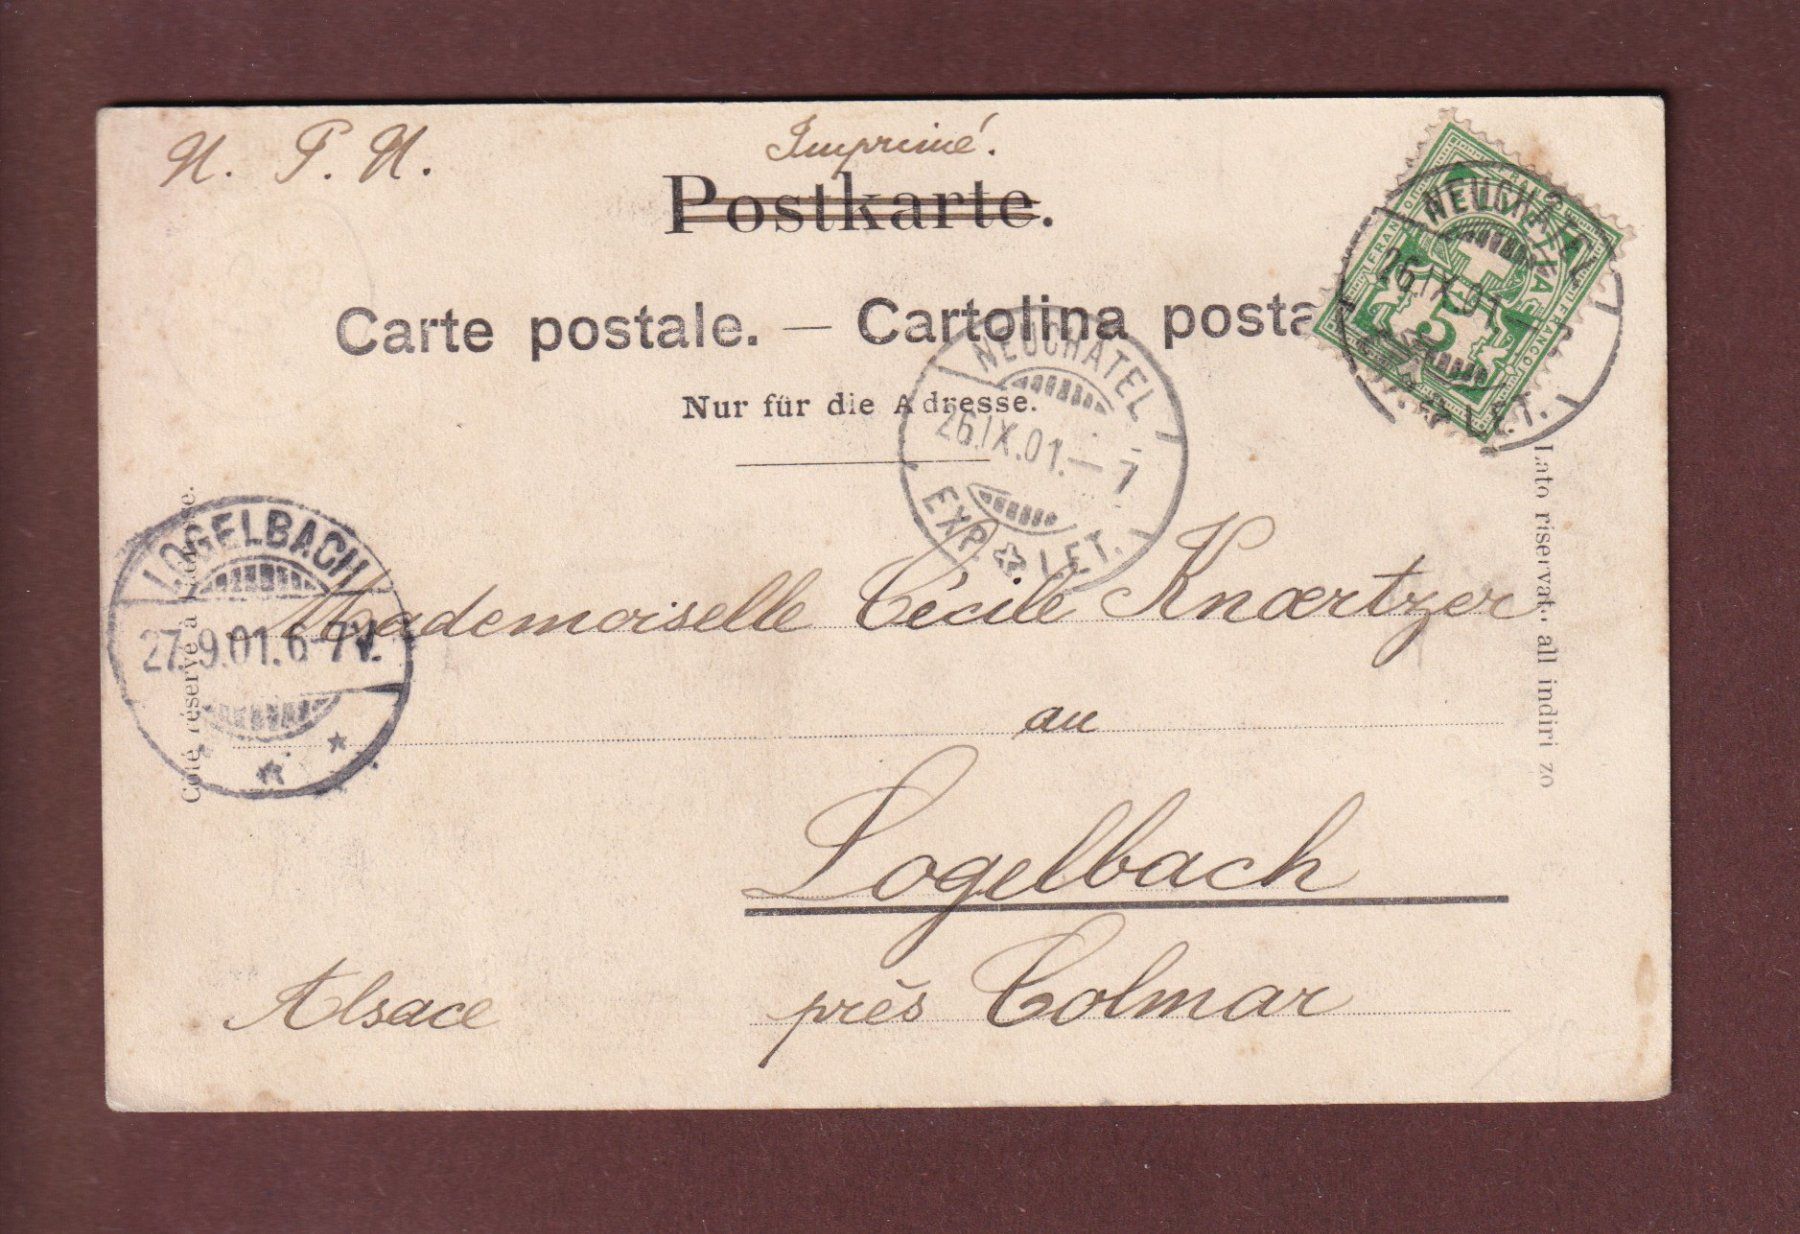 N. P. N.
Imprimé.
Postkarte.
Carte postale. — Cartolina posta
Nur für die Adresse.
NEUCHATEL
26.IX.01.–
LET.
FRANCO
NEUCHATEL
26.IX.01.–7
EXP. LET.
LOGELBACH
27.9.01.6-7V.
Côté réservé à
Lato riservat. all indiri zo
Mademoiselle Cécile Knœrtzer
au
Logelbach
près Colmar
Alsace